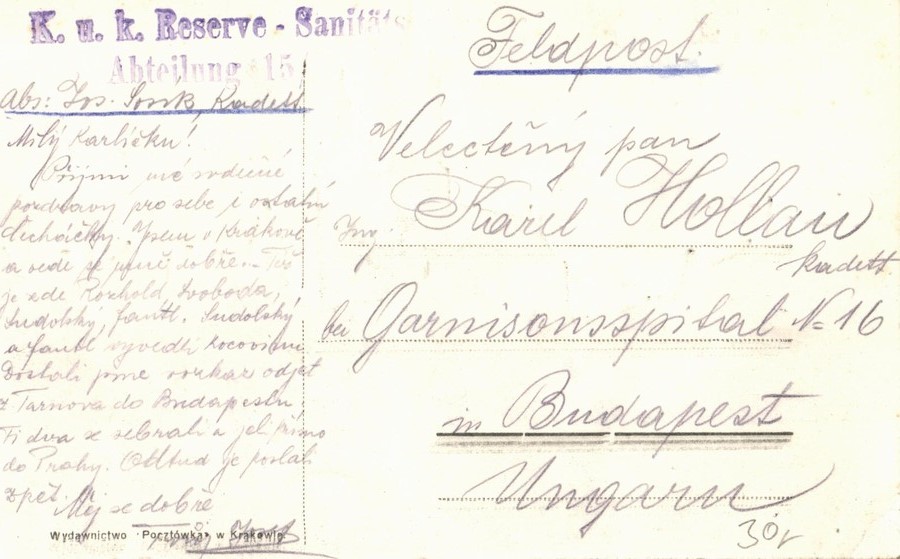 K. u. k. Reserve - Sanitäts
Abteilung 15
Feldpost.
Abs: Jos. Kadett
Milý Karlíčku!
Přijmi mé srdečné
pozdravy pro sebe i ostatní
čecháčky. Jsem v Krakově
a vede se mně dobře. Též
je zde Svoboda,
Sudolský, Fantl. Sudolský
a Fantl vyvedli
Dostali jsme rozkaz odjet
z Tarnova do Budapeštu,
Ti dva se sebrali a jeli přímo
do Prahy. Odtud je poslali
zpět. Měj se dobře
Tvůj Josef
Velectěný pan
Ing. Karel Hollan
kadett
bei Garnisonsspital No 16
in Budapest
Ungarn
Wydawnictwo "Pocztówka" w Krakowie.